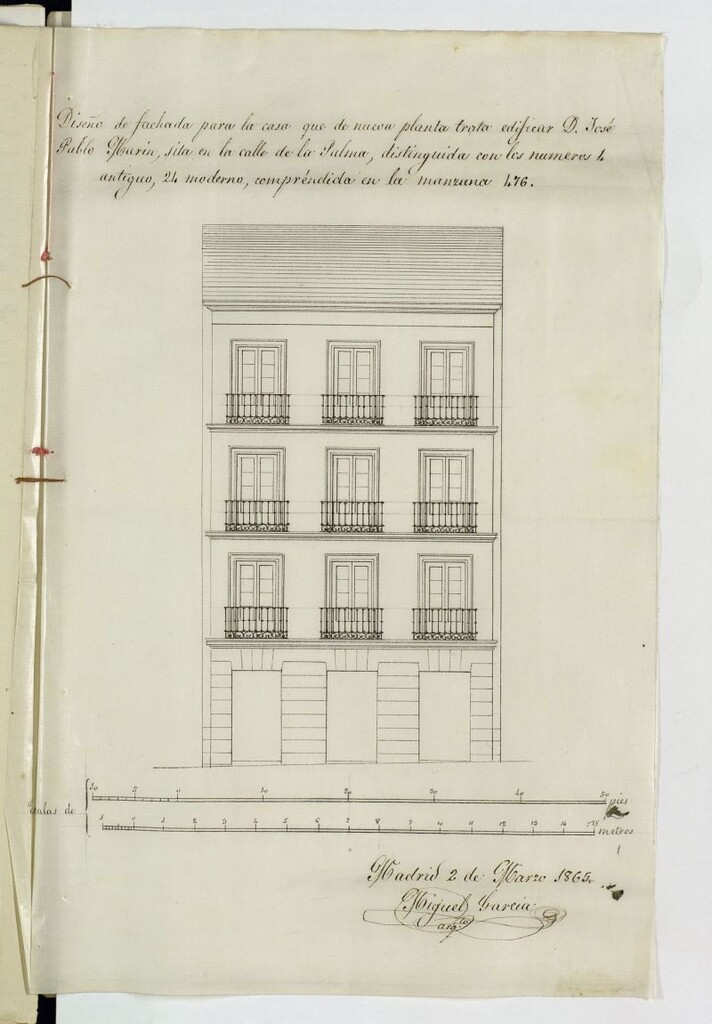 Diseño de fachada para la casa que de nueva planta trata edificar D. José
Pablo Marin, sita en la calle de la Palma, distinguida con los numeros 4
antiguo, 24 moderno, compréndida en la manzana 476.
Escalas de
10 5 0 10 20 30 40 50 pies
1 2 3 4 5 6 7 8 9 10 11 12 13 14 15 metros
Madrid 2 de Marzo 1865.
Miguel Garcia
arqto